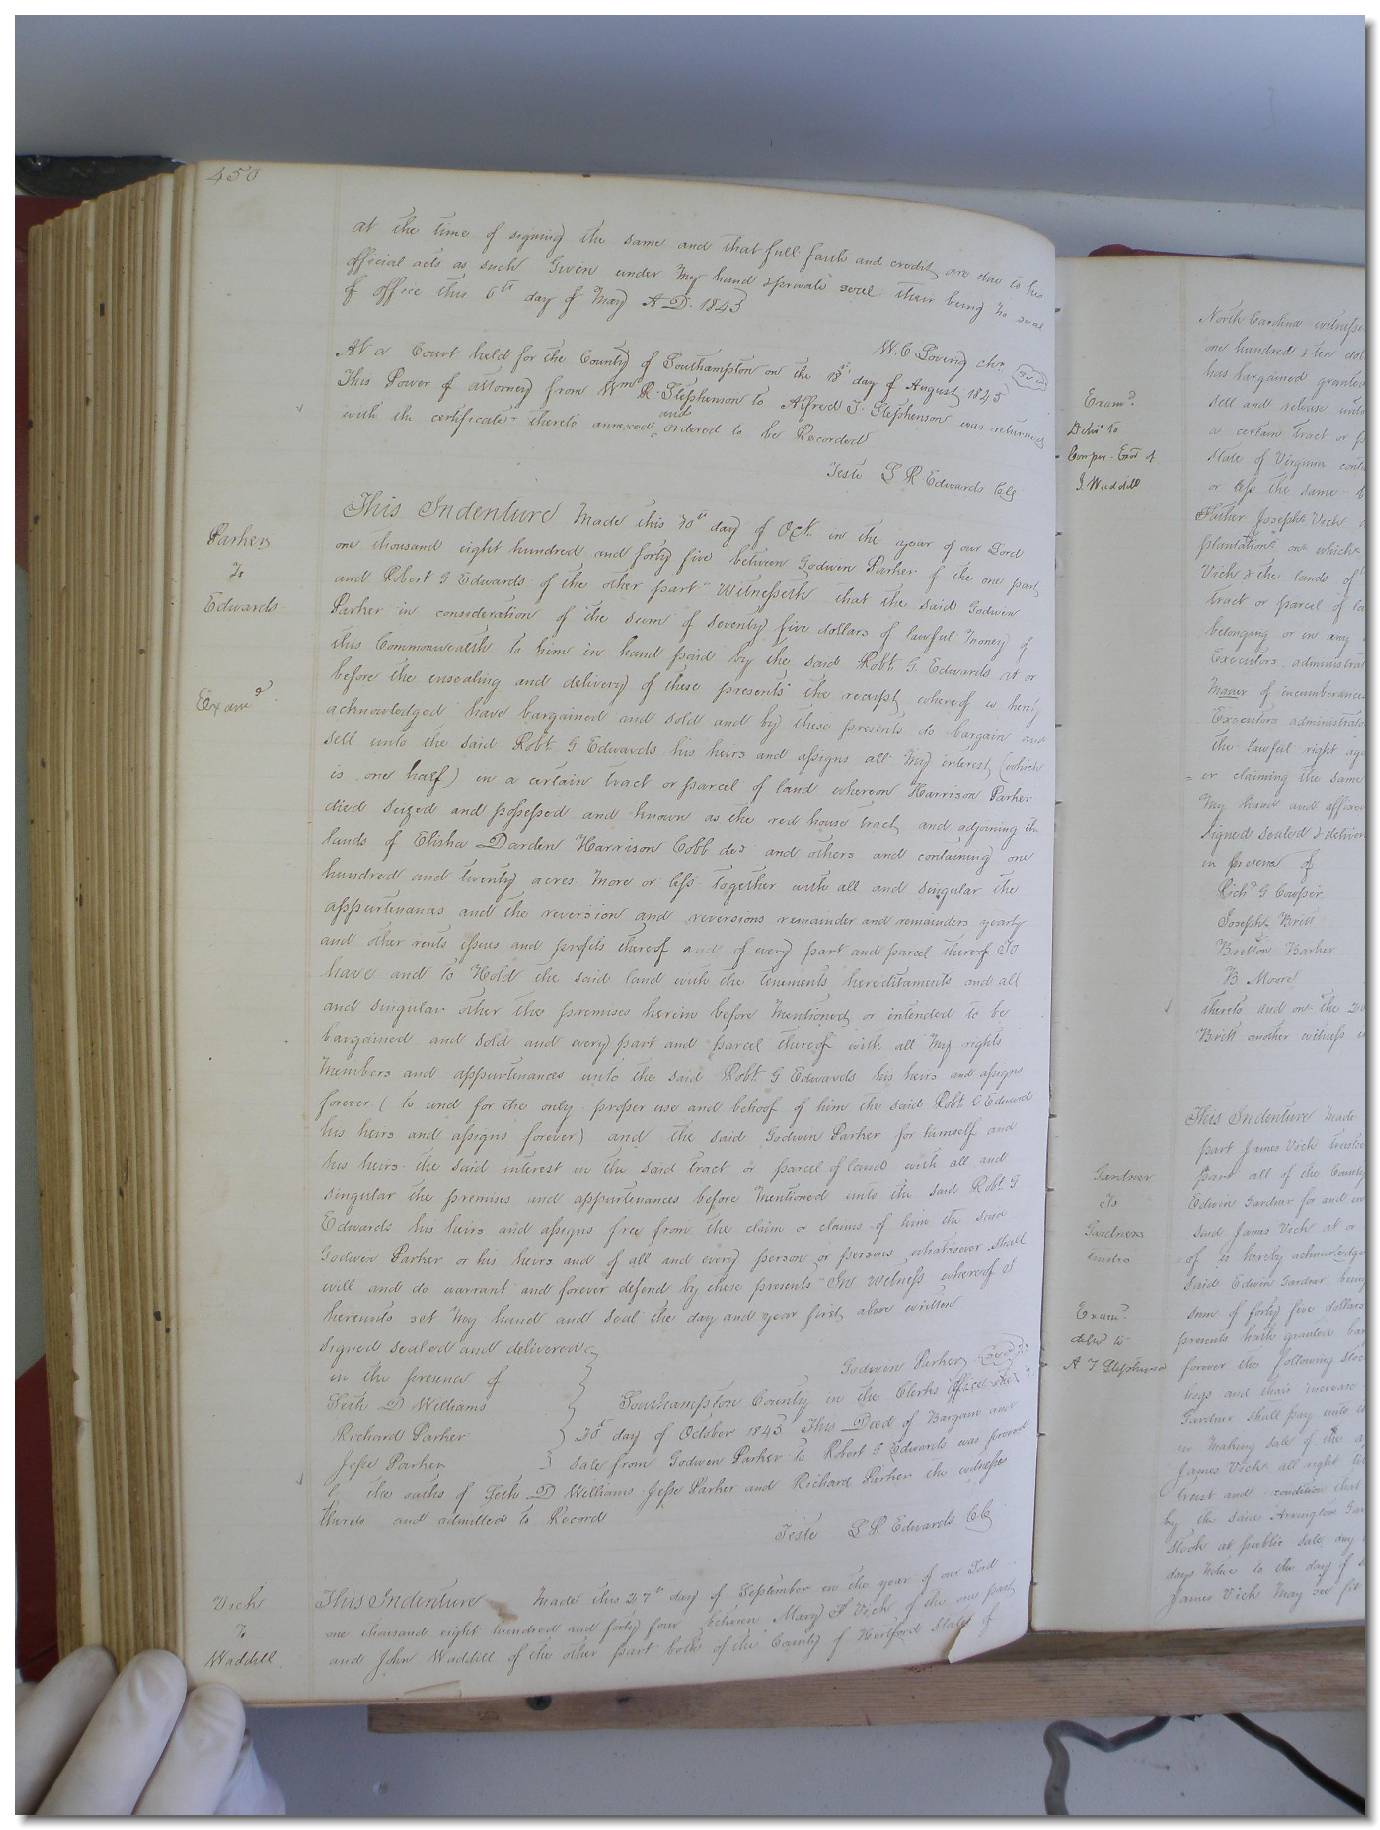 450
at the time of signing the same and that full faith and credit are due to his
official acts as such Given under my hand & private seal their being no seal
of office this 6th day of May A.D. 1845
W. C. Loving chr. seal
At a Court held for the County of Southampton on the 18th day of August 1845
This Power of attorney from Wm R. Stephenson to Alfred T. Stephenson was returned
with the certificate thereto annexed and ordered to be Recorded
Teste L R Edwards Clk
Parker
To
Edwards
Examd
This Indenture Made this 30th day of Oct. in the year of our Lord
one thousand eight hundred and forty five between Godwin Parker of the one part
and Robert G Edwards of the other part Witnesseth that the said Godwin
Parker in consideration of the sum of seventy five dollars of lawful money of
this Commonwealth to him in hand paid by the said Robt. G. Edwards at or
before the ensealing and delivery of these presents the receipt whereof is hereby
acknowledged have bargained and sold and by these presents do bargain and
sell unto the said Robt. G Edwards his heirs and assigns all my interest (which
is one half) in a certain tract or parcel of land whereon Harrison Parker
died seized and possessed and known as the red house tract and adjoining the
lands of Elisha Darden Harrison Cobb des and others and containing one
hundred and twenty acres more or less together with all and singular the
appurtenanas and the reversion and reversions remainder and remainders yearly
and other rents issues and profits thereof and of every part and parcel thereof To
have and to Hold the said land with the tenements hereditaments and all
and singular other the premises herein before mentioned or intended to be
bargained and sold and every part and parcel thereof with all my rights
members and appurtenances unto the said Robt. G Edwards his heirs and assigns
forever (to and for the only proper use and behoof of him the said Robt. G Edward
his heirs and assigns forever) and the said Godwin Parker for himself and
his heirs the said interest in the said tract or parcel of land with all and
singular the premises and appurtenances before mentioned unto the said Robt. G
Edwards his heirs and assigns free from the claim or claims of him the said
Godwin Parker or his heirs and of all and every person or persons whatsoever shall
will and do warrant and forever defend by these presents In witness whereof I
hereunto set my hand and seal the day and year first above written
Signed sealed and delivered
in the presence of
Godwin Parker seal
Seth D Williams
Richard Parker
Jesse Parker
Southampton County in the Clerks office the
30th day of October 1845 This Deed of Bargain and
sale from Godwin Parker to Robert G Edwards was proved
by the oaths of Seth D Williams Jesse Parker and Richard Parker the witnesses
thereto and admitted to Record
Teste L R Edwards Clk
Vick
To
Waddill
This Indenture Made this 27th day of September in the year of our Lord
one thousand eight hundred and forty four between Mary S Vick of the one part
and John Waddill of the other part both of the County of Hertford State of
Examd
Deld to
J. Waddill
North Carolina witnesse
one hundred & ten dol
has bargained granted
sell and release unto
a certain tract or p
State of Virginia cont
or less the same
Father Joseph Vick
plantation on which
Vick & the lands of
tract or parcel of la
belonging or in any
Executors, administrat
manner of incumberance
Executors administrato
the lawful right ag
or claiming the same
my hand and affixed
signed sealed & deliver
in presence of
Richd G Cowper
Joseph Britt
Britton Barker
B Moore
thereto and on the
Britt another witness
Gardner
To
Gardners
Examd
deld to
A T Stephenson
This Indenture made
part James Vick trustee
part all of the County
Edwin Gardner for and in
said James Vick at or
of is hereby acknowledge
said Edwin Gardner being
sum of forty five dollars
presents hath granted bar
forever the following stoc
hogs and their increase
Gardner shall pay unto
in making sale of the
James Vick all right
trust and condition that
by the said Arrington Gar
stock at public sale any
days notice to the day of s
James Vick may see fit